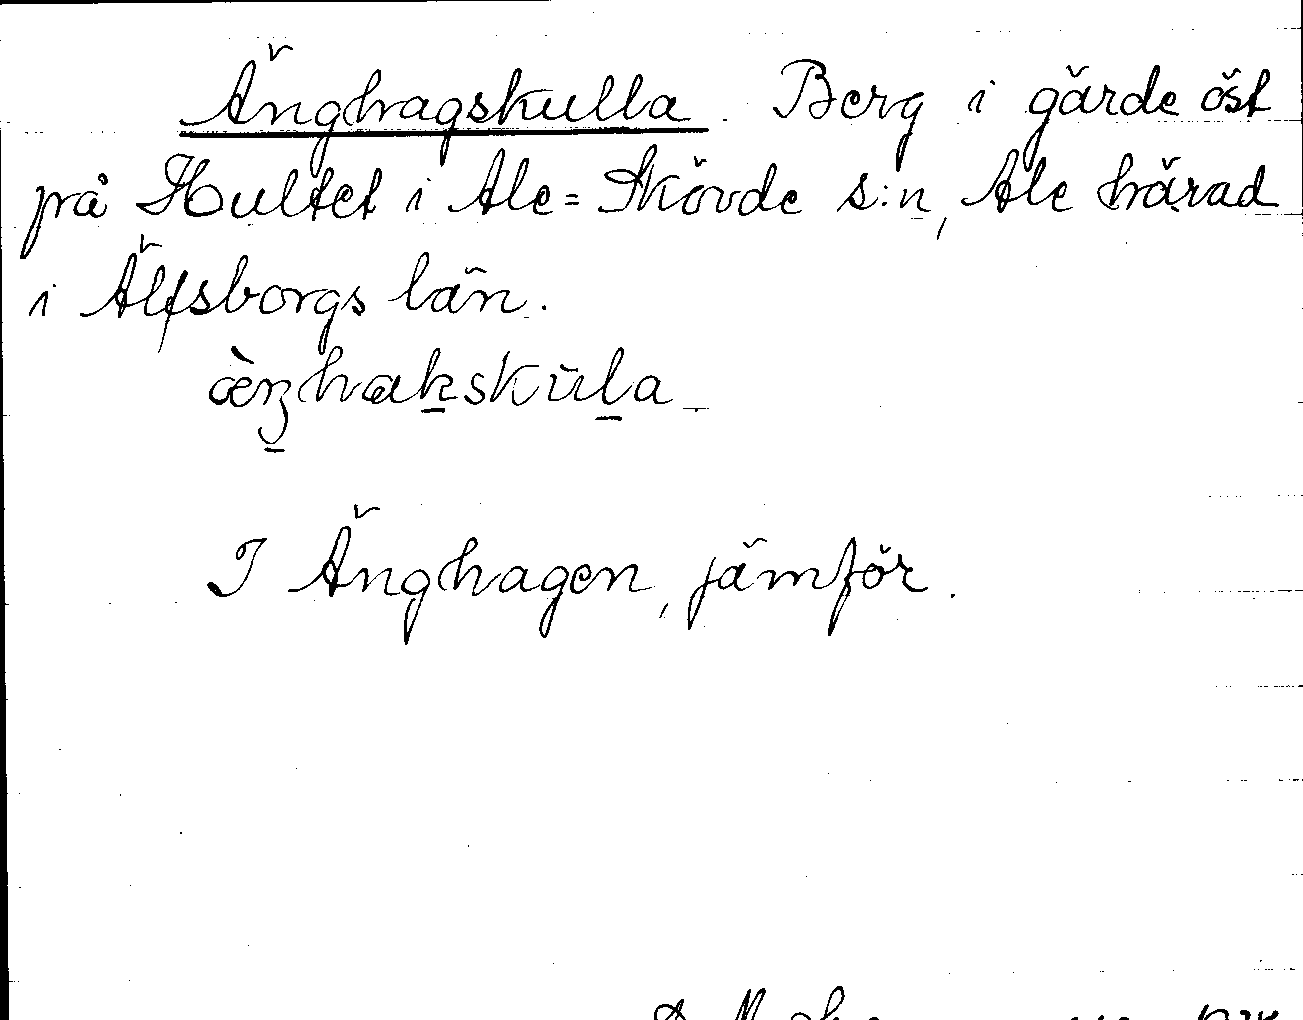 Änghagskulla. Berg i gärde öst
på Hultet i Ale=Skövde s:n, Ale härad
i Älfsborgs län.
æ̀ŋhakskūla
I Änghagen, jämför.